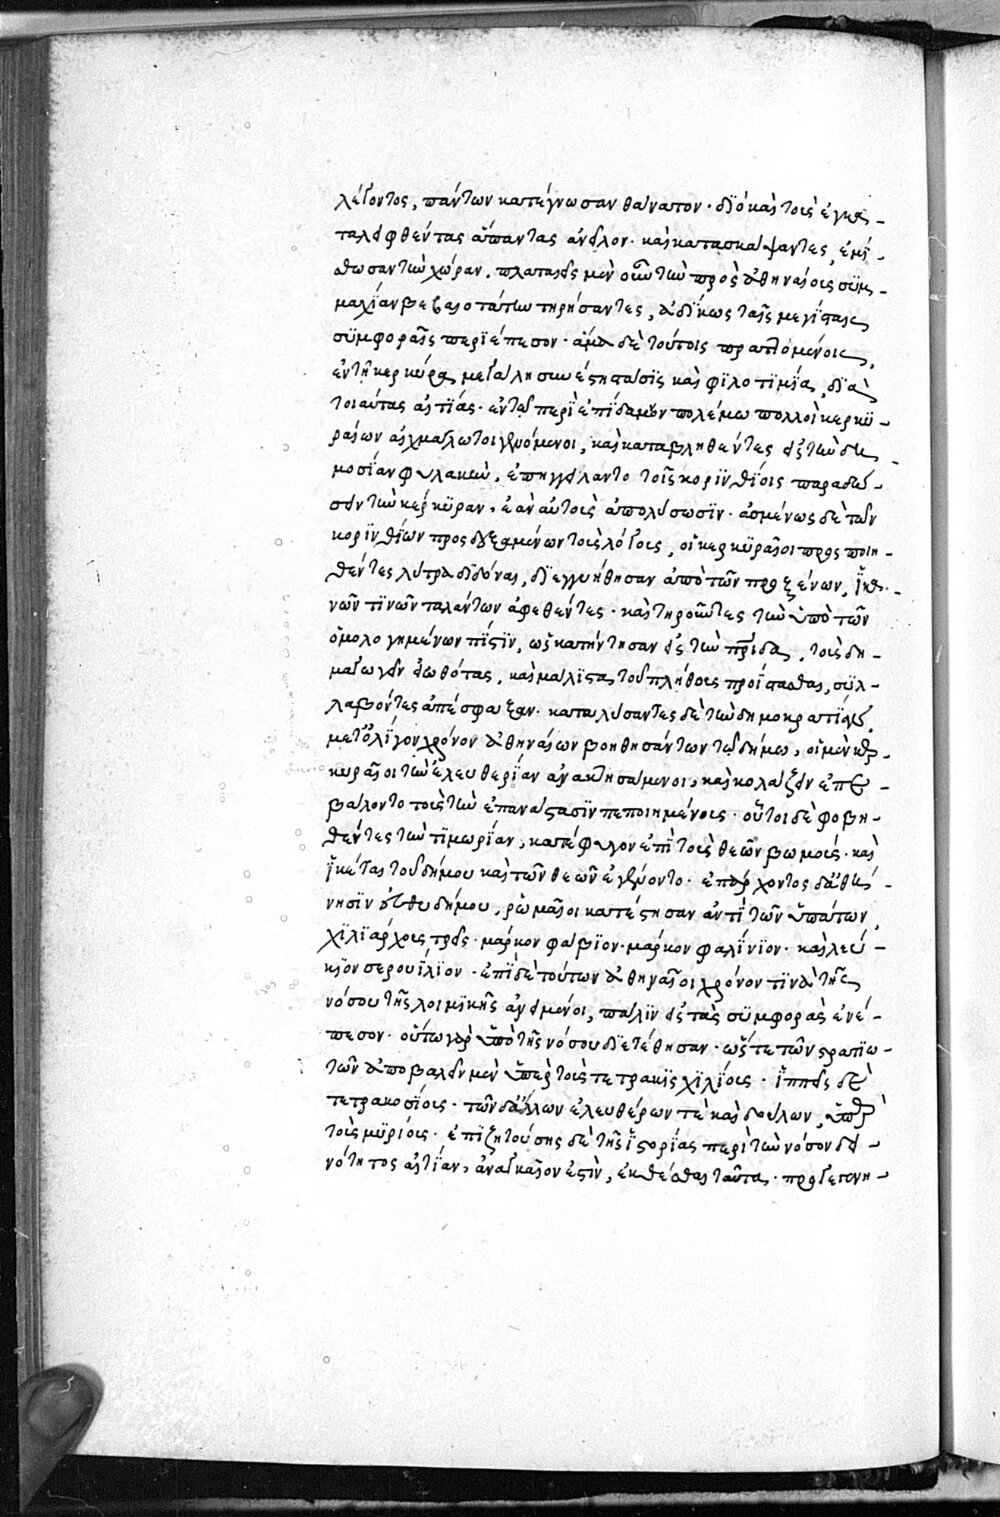 λέγοντος, πάντων κατέγνωσαν θάνατον· διὸ καὶ τοὺς ἐγκα-
ταλειφθέντας ἅπαντας ἀνεῖλον· καὶ κατασκάψαντες, ἐμί-
σθωσαν τὴν χώραν. πλαταιεῖς μὲν οὖν τὴν πρὸς ἀθηναίους συμ-
μαχίαν βεβαιοτάτην τηρήσαντες, ἀδίκως ταῖς μεγίσταις
συμφοραῖς περιέπεσον· ἅμα δὲ τούτοις πραττομένοις,
ἐν τῇ κερκύρᾳ μεγάλη συνέστη στάσις καὶ φιλοτιμία, διὰ
τοιαύτας αἰτίας· ἐν τῷ περὶ ἐπίδαμνον πολέμῳ πολλοὶ κερκυ-
ραίων αἰχμάλωτοι γενόμενοι, καὶ καταβληθέντες εἰς τὴν δη-
μοσίαν φυλακὴν, ἐπηγγείλαντο τοῖς κορινθίοις παραδώ-
σειν τὴν κέρκυραν, ἐὰν αὐτοὺς ἀπολύσωσιν· ἀσμένως δὲ τῶν
κορινθίων προσδεξαμένων τοὺς λόγους, οἱ κερκυραῖοι προσποιη-
θέντες λύτρα διδόναι, διεγγυήθησαν ἀπὸ τῶν προξένων, ἱκα-
νῶν τινῶν ταλάντων ἀφεθέντες· καὶ τηροῦντες τὴν ὑπὸ τῶν
ὁμολογημένων πίστιν, ὡς κατήντησαν εἰς τὴν πρίδα, τοὺς δη-
μαγωγεῖν εἰωθότας, καὶ μάλιστα τοῦ πλήθους προΐστασθαι, συλ-
λαβόντες ἀπέσφαξαν· καταλύσαντες δὲ τὴν δημοκρατίαν,
μετ' ὀλίγον χρόνον ἀθηναίων βοηθησάντων τῷ δήμῳ, οἱ μὲν κερ-
κυραῖοι τὴν ἐλευθερίαν ἀνακτησάμενοι, καὶ κολάζειν ἐπε-
βάλοντο τοὺς τὴν ἐπανάστασιν πεποιημένους· οὗτοι δὲ φοβη-
θέντες τὴν τιμωρίαν, κατέφυγον ἐπὶ τοὺς θεῶν βωμούς· καὶ
ἱκέται τοῦ δήμου καὶ τῶν θεῶν ἐγένοντο· ἐπ' ἄρχοντος δ' ἀθή-
νησιν εὐθυδήμου, ῥωμαῖοι κατέστησαν ἀντὶ τῶν ὑπάτων,
χιλιάρχους τρεῖς· μάρκον φάβιον· μάρκον φαλίνιον· καὶ λεύ-
κιον σερουΐλιον· ἐπὶ δὲ τούτων ἀθηναῖοι χρόνον τινὰ τῆς
νόσου τῆς λοιμικῆς ἀνειμένοι, πάλιν εἰς τὰς συμφορὰς ἐνέ-
πεσον· οὕτω γὰρ ὑπὸ τῆς νόσου διετέθησαν· ὥστε τῶν στρατιω-
τῶν ἀποβαλεῖν μὲν ὑπὲρ τοὺς τετρακισχιλίους· ἱππεῖς δὲ
τετρακοσίους· τῶν δ' ἄλλων ἐλευθέρων τε καὶ δούλων, ὑπὲρ
τοὺς μυρίους· ἐπιζητούσης δὲ τῆς ἱστορίας περὶ τὴν νόσον δει-
νότητος αἰτίαν, ἀναγκαῖον ἐστὶν, ἐκθέσθαι ταῦτα· προγεγενη-